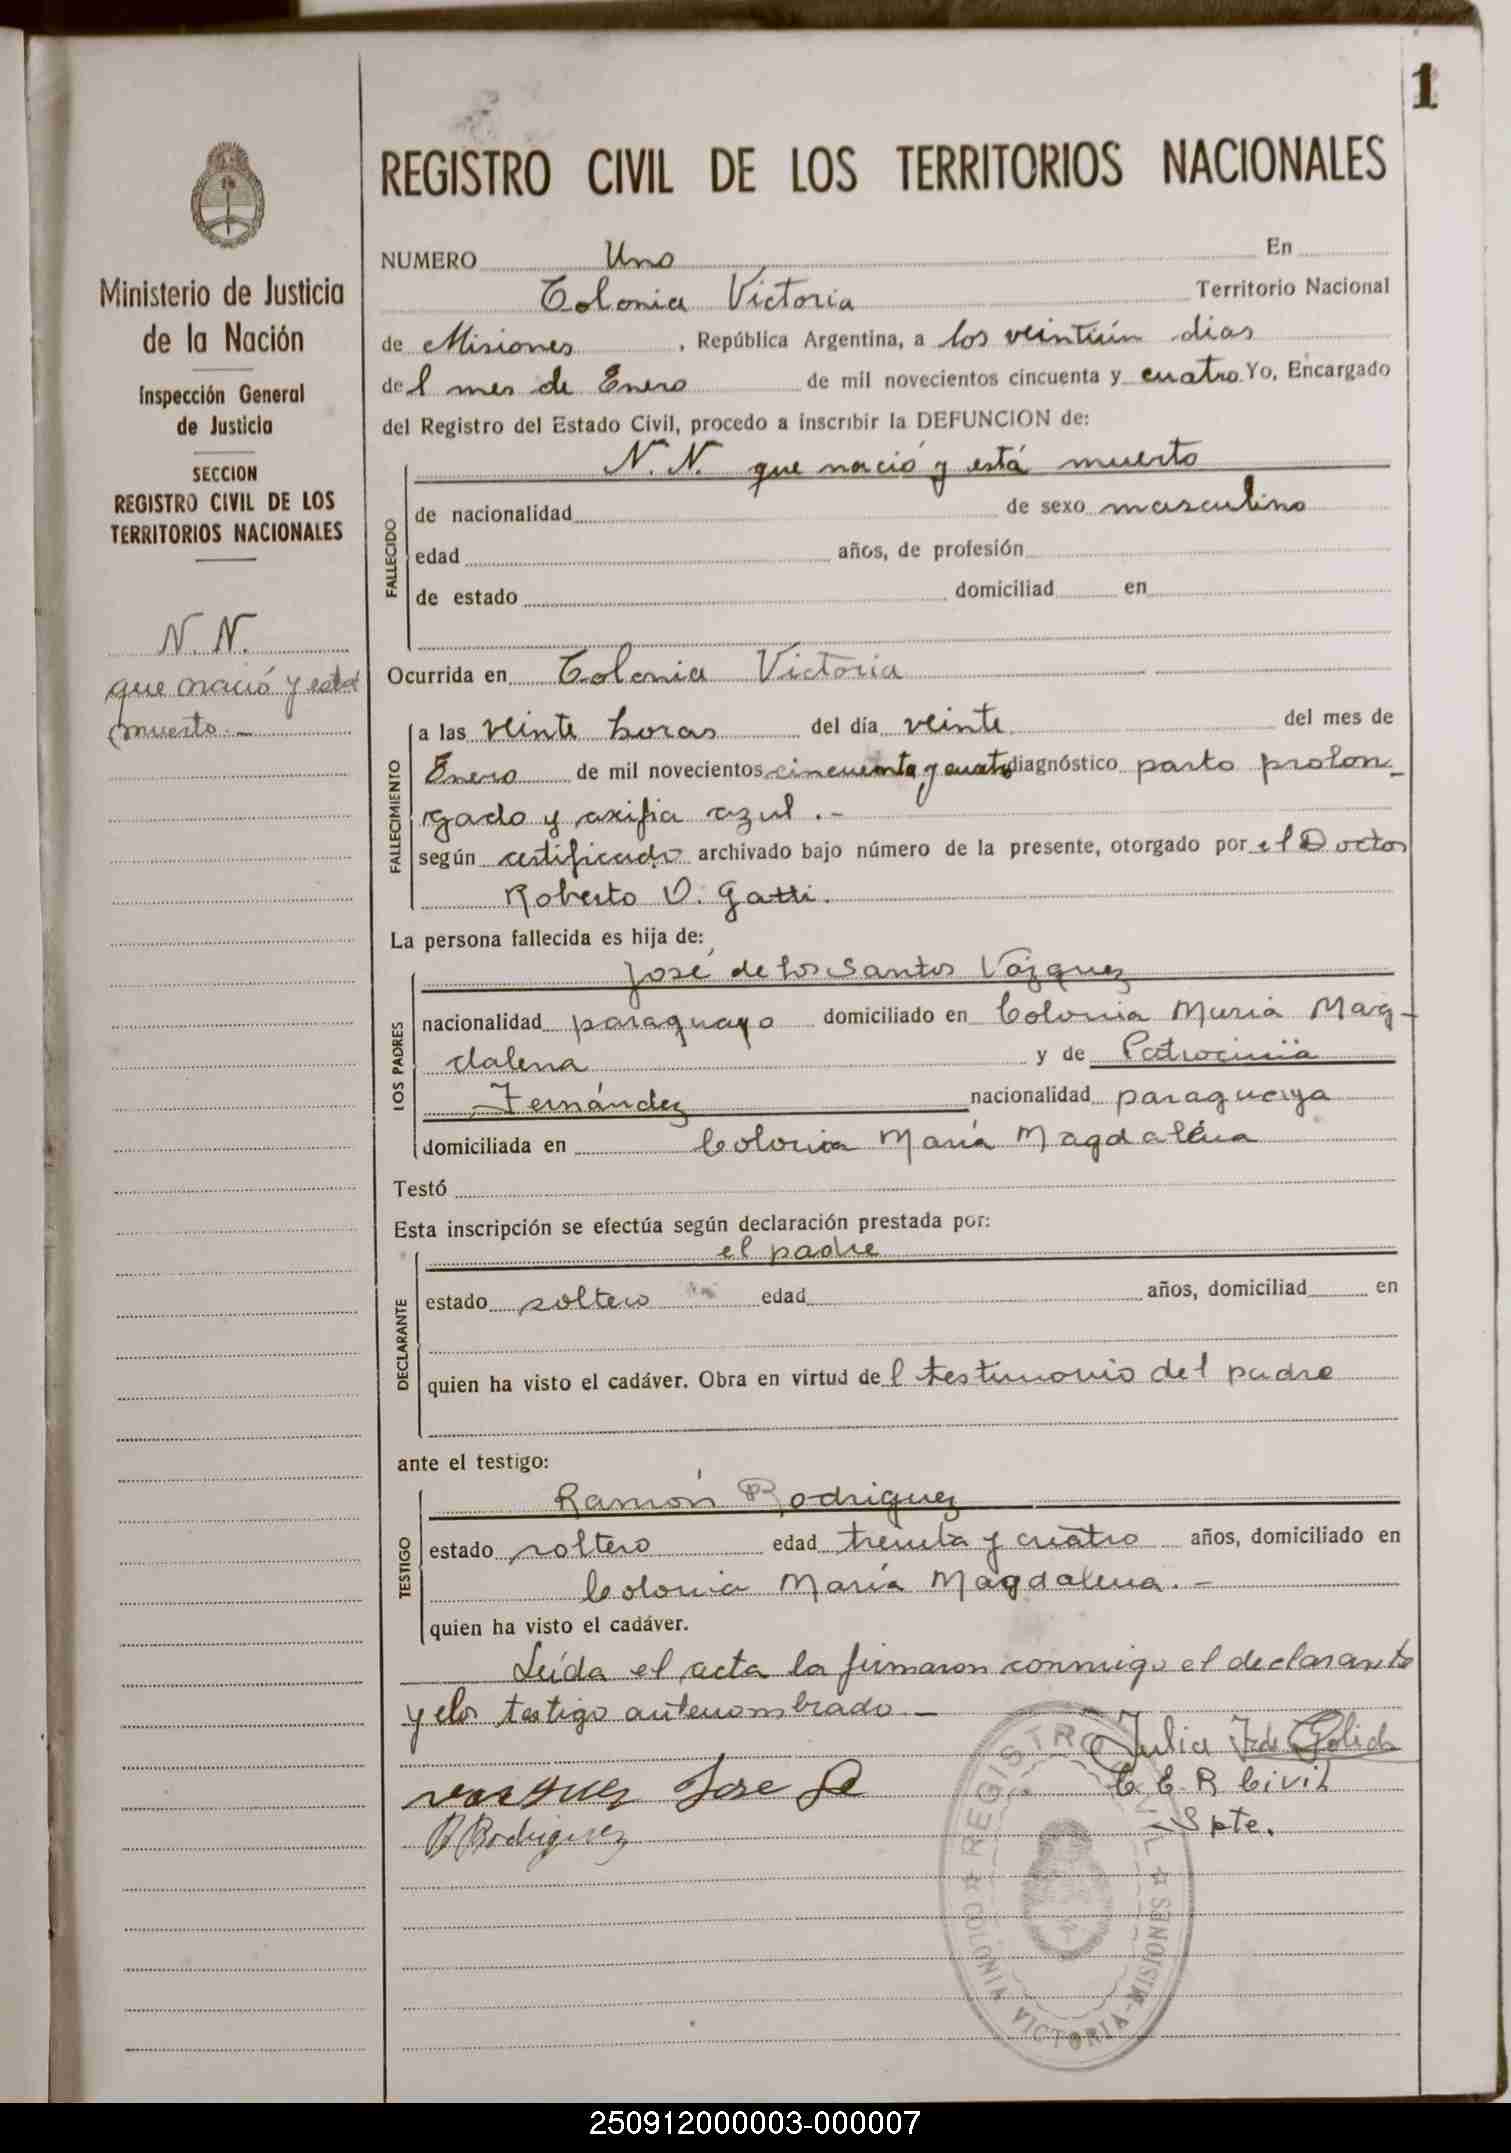 1
REGISTRO CIVIL DE LOS TERRITORIOS NACIONALES
Ministerio de Justicia
de la Nación
Inspección General
de Justicia
SECCION
REGISTRO CIVIL DE LOS
TERRITORIOS NACIONALES
N. N.
que nació y está
muerto.-
NUMERO Uno En
Colonia Victoria Territorio Nacional
de Misiones, República Argentina, a los veintiún dias
del mes de Enero de mil novecientos cincuenta y cuatro Yo, Encargado
del Registro del Estado Civil, procedo a inscribir la DEFUNCION de:
N. N. que nació y está muerto
FALLECIDO
de nacionalidad de sexo masculino
edad años, de profesión
de estado domiciliad en
Ocurrida en Colonia Victoria
FALLECIMIENTO
a las veinte horas del día veinte del mes de
Enero de mil novecientos cincuenta y cuatro diagnóstico parto prolon-
gado y axifia azul.-
según certificado archivado bajo número de la presente, otorgado por el Doctor
Roberto V. Gatti.
La persona fallecida es hija de:
LOS PADRES
José de los Santos Vázquez
nacionalidad paraguayo domiciliado en Colonia Maria Mag-
dalena y de Patrocinia
Fernández nacionalidad paraguaya
domiciliada en Colonia María Magdalena
Testó
Esta inscripción se efectúa según declaración prestada por:
el padre
DECLARANTE
estado soltero edad años, domiciliad en
quien ha visto el cadáver. Obra en virtud del testimonio del padre
ante el testigo:
TESTIGO
Ramón Rodriguez
estado soltero edad treinta y cuatro años, domiciliado en
Colonia María Magdalena.-
quien ha visto el cadáver.
Leída el acta la firmaron conmigo el declarante
y el testigo antenombrado.-
Julia de Golich
Vasquez Jose
E. R. Civil
R Rodriguez
Spte.
REGISTRO CIVIL
COLONIA VICTORIA-MISIONES
250912000003-000007